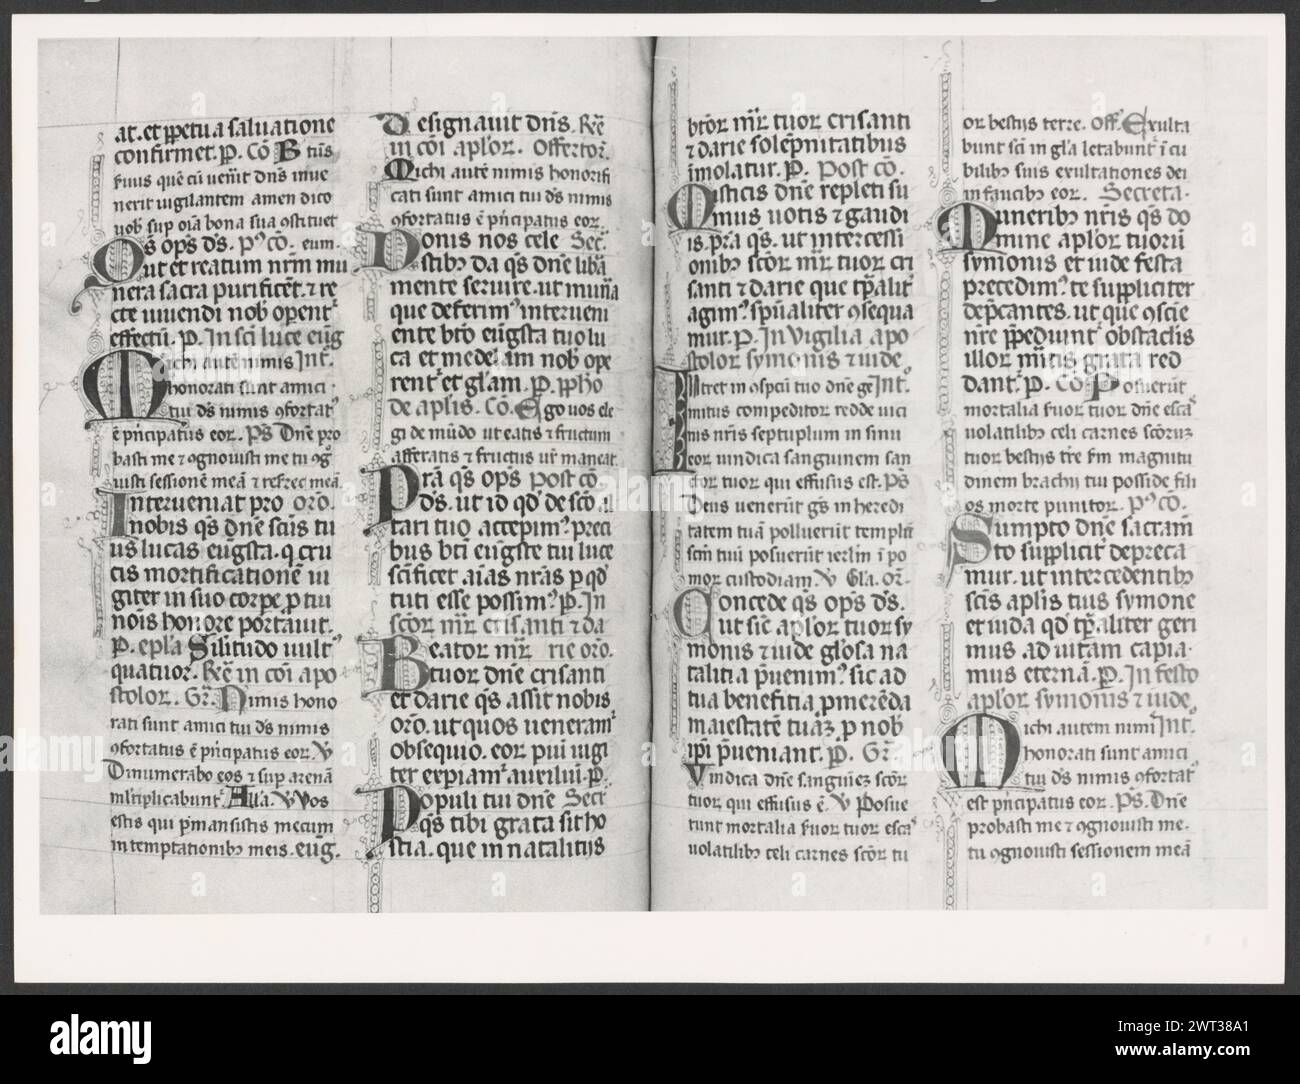 at. et ꝑpetua saluatione
confirmet. P. Cō Btūs
seruus quē cū uenit dn̄s inue
nerit uigilantem amen dico
uob sup oīa bona sua ꝯstituet
Qs op̄s ds̄. Pꝰ cō. eum.
ut et reatum nrm̄ mu
nera sacra purificēt. ⁊ re
cte uiuendi nob opent᷑
effectū. P. In scī luce eūg
Michi autē nimis Int᷑.
honorati sunt amici
tui ds̄ nimis ꝯfortatꝰ
ē pn̄cipatus eor. Ps̄ Dn̄e pro
basti me ⁊ ꝯgnouisti me tu ꝯg
uisti sessionē meā ⁊ resrec meā.
Interueniat pro orō.
nobis qs̄ dn̄e scūs tu
us lucas eūgsta. q cru
cis mortificationē iu
giter in suo corpe, p tui
nōis honore portauit.
P. ep̄la Silitudo uult
quatuor. Rē in cōi apo
stolor. Gr̄. Nimis hono
rati sunt amici tui ds̄ nimis
ꝯfortatus ē pn̄cipatus eor. ℣
Dinumerabo eos ⁊ sup arenā
ml̄tiplicabunt᷑ Alla. ℣ Vos
estis qui pmansistis mecum
in temptationibꝫ meis. eūg.
Designauit dn̄s. Rē
in cōi aplor. Offertor̄.
Michi autē nimis honorifi
cati sunt amici tui ds̄ nimis
ꝯfortatus ē pn̄cipatus eor
Donis nos cele Sec̄.
stibꝫ da qs̄ dn̄e libā
mente seruire. ut mun̄a
que deferimꝰ interueni
ente btō eūgsta tuo lu
ca et medelam nob ope
rent᷑ et glām. P. pp̄ho
de aplis. Cō. Ego uos ele
gi de mūdo ut eatis ⁊ fructum
afferatis ⁊ fructus ur̄ maneat
Prā qs̄ op̄s Post cō.
ds̄. ut id qd̄ de scō al
tari tuo accepimꝰ. preci
bus btī eūgste tui luce
scīficet aīas nrās p qd̄
tuti esse possimꝰ. P. In
scōr mr̄ crisanti ⁊ da
Beator mr̄ rie orō.
tuor dn̄e crisanti
et darie qs̄ assit nobis
orō. ut quos ueneram᷑
obsequio. eor pui iugi
ter expiam᷑ auxiliū. P.
Populi tui dn̄e Sec̄
qs̄ tibi grata sit ho
stia. que in natalitijs
btōr mr̄ tuor crisanti
⁊ darie solēpnitatibus
īmolatur. P. Post cō.
Misticis dn̄e repleti su
mus uotis ⁊ gaudi
is. prā qs̄. ut intercessi
onibꝫ scōr mr̄ tuor cri
santi ⁊ darie que tp̄alit᷑
agimꝰ. sp̄ualiter ꝯsequa
mur. P. In Vigilia apo
stolor symonis ⁊ iude
Intret in ꝯspcū tuo dn̄e ge Int᷑.
mitus compeditor redde uici
nis nr̄is septuplum in sinu
eor uindica sanguinem san
ctor tuor qui effusus est. Ps̄
Deus uenerūt gēs in heredi
tatem tuā polluerūt templū
scm̄ tuū posuerūt ierlm̄ ī po
mor custodiam. ℣ Gla. or̄.
Concede qs̄ op̄s ds̄.
ut sic̄ aplor tuor sy
monis ⁊ iude glōsa na
talitia puenimꝰ. sic ad
tua benefitia, pmerēda
maiestatē tuāꝫ p nob
ip̄i pueniant. P. Gr̄.
Vindica dn̄e sanguineꝫ scōr
tuor qui effusus ē. ℣ Posue
runt mortalia suor tuor escaꝰ
uolatilibꝫ celi carnes scōr tu
or bestijs terre. Off. Exulta
bunt scī in glā letabunt᷑ ī cu
bilibꝫ suis exultationes dei
in faucibꝫ eor. Secreta.
Muneribꝫ nr̄is qs̄ do
mine aplor tuorū
symonis et iude festa
precedimꝰ. te suppliciter
dep̄cantes. ut que ꝯscie
nr̄e p̄pediunt᷑ obstaclis
illor mitis grata red
dant᷑. P. Cō Posuerūt
mortalia suor tuor dn̄e escaꝰ
uolatilibꝫ celi carnes scōruꝫ
tuor bestijs tr̄e sm̄ magnitu
dinem brachij tui posside fili
os morte punitor. Pꝰ cō.
Sumpto dn̄e sacram̄
to supplicit᷑ depreca
mur. ut intercedentibꝫ
scīs aplis tuis symone
et iuda qd̄ tp̄aliter geri
mus ad uitam capia
mus eternā. P. In festo
aplor symonis ⁊ iude.
Michi autem nimi Int᷑.
honorati sunt amici
tui ds̄ nimis ꝯfortatꝰ
est pn̄cipatus eor. Ps̄. Dn̄e
probasti me ⁊ ꝯgnouisti me.
tu ꝯgnouisti sessionem meā
alamy
Image ID: 2WT38A1
www.alamy.com